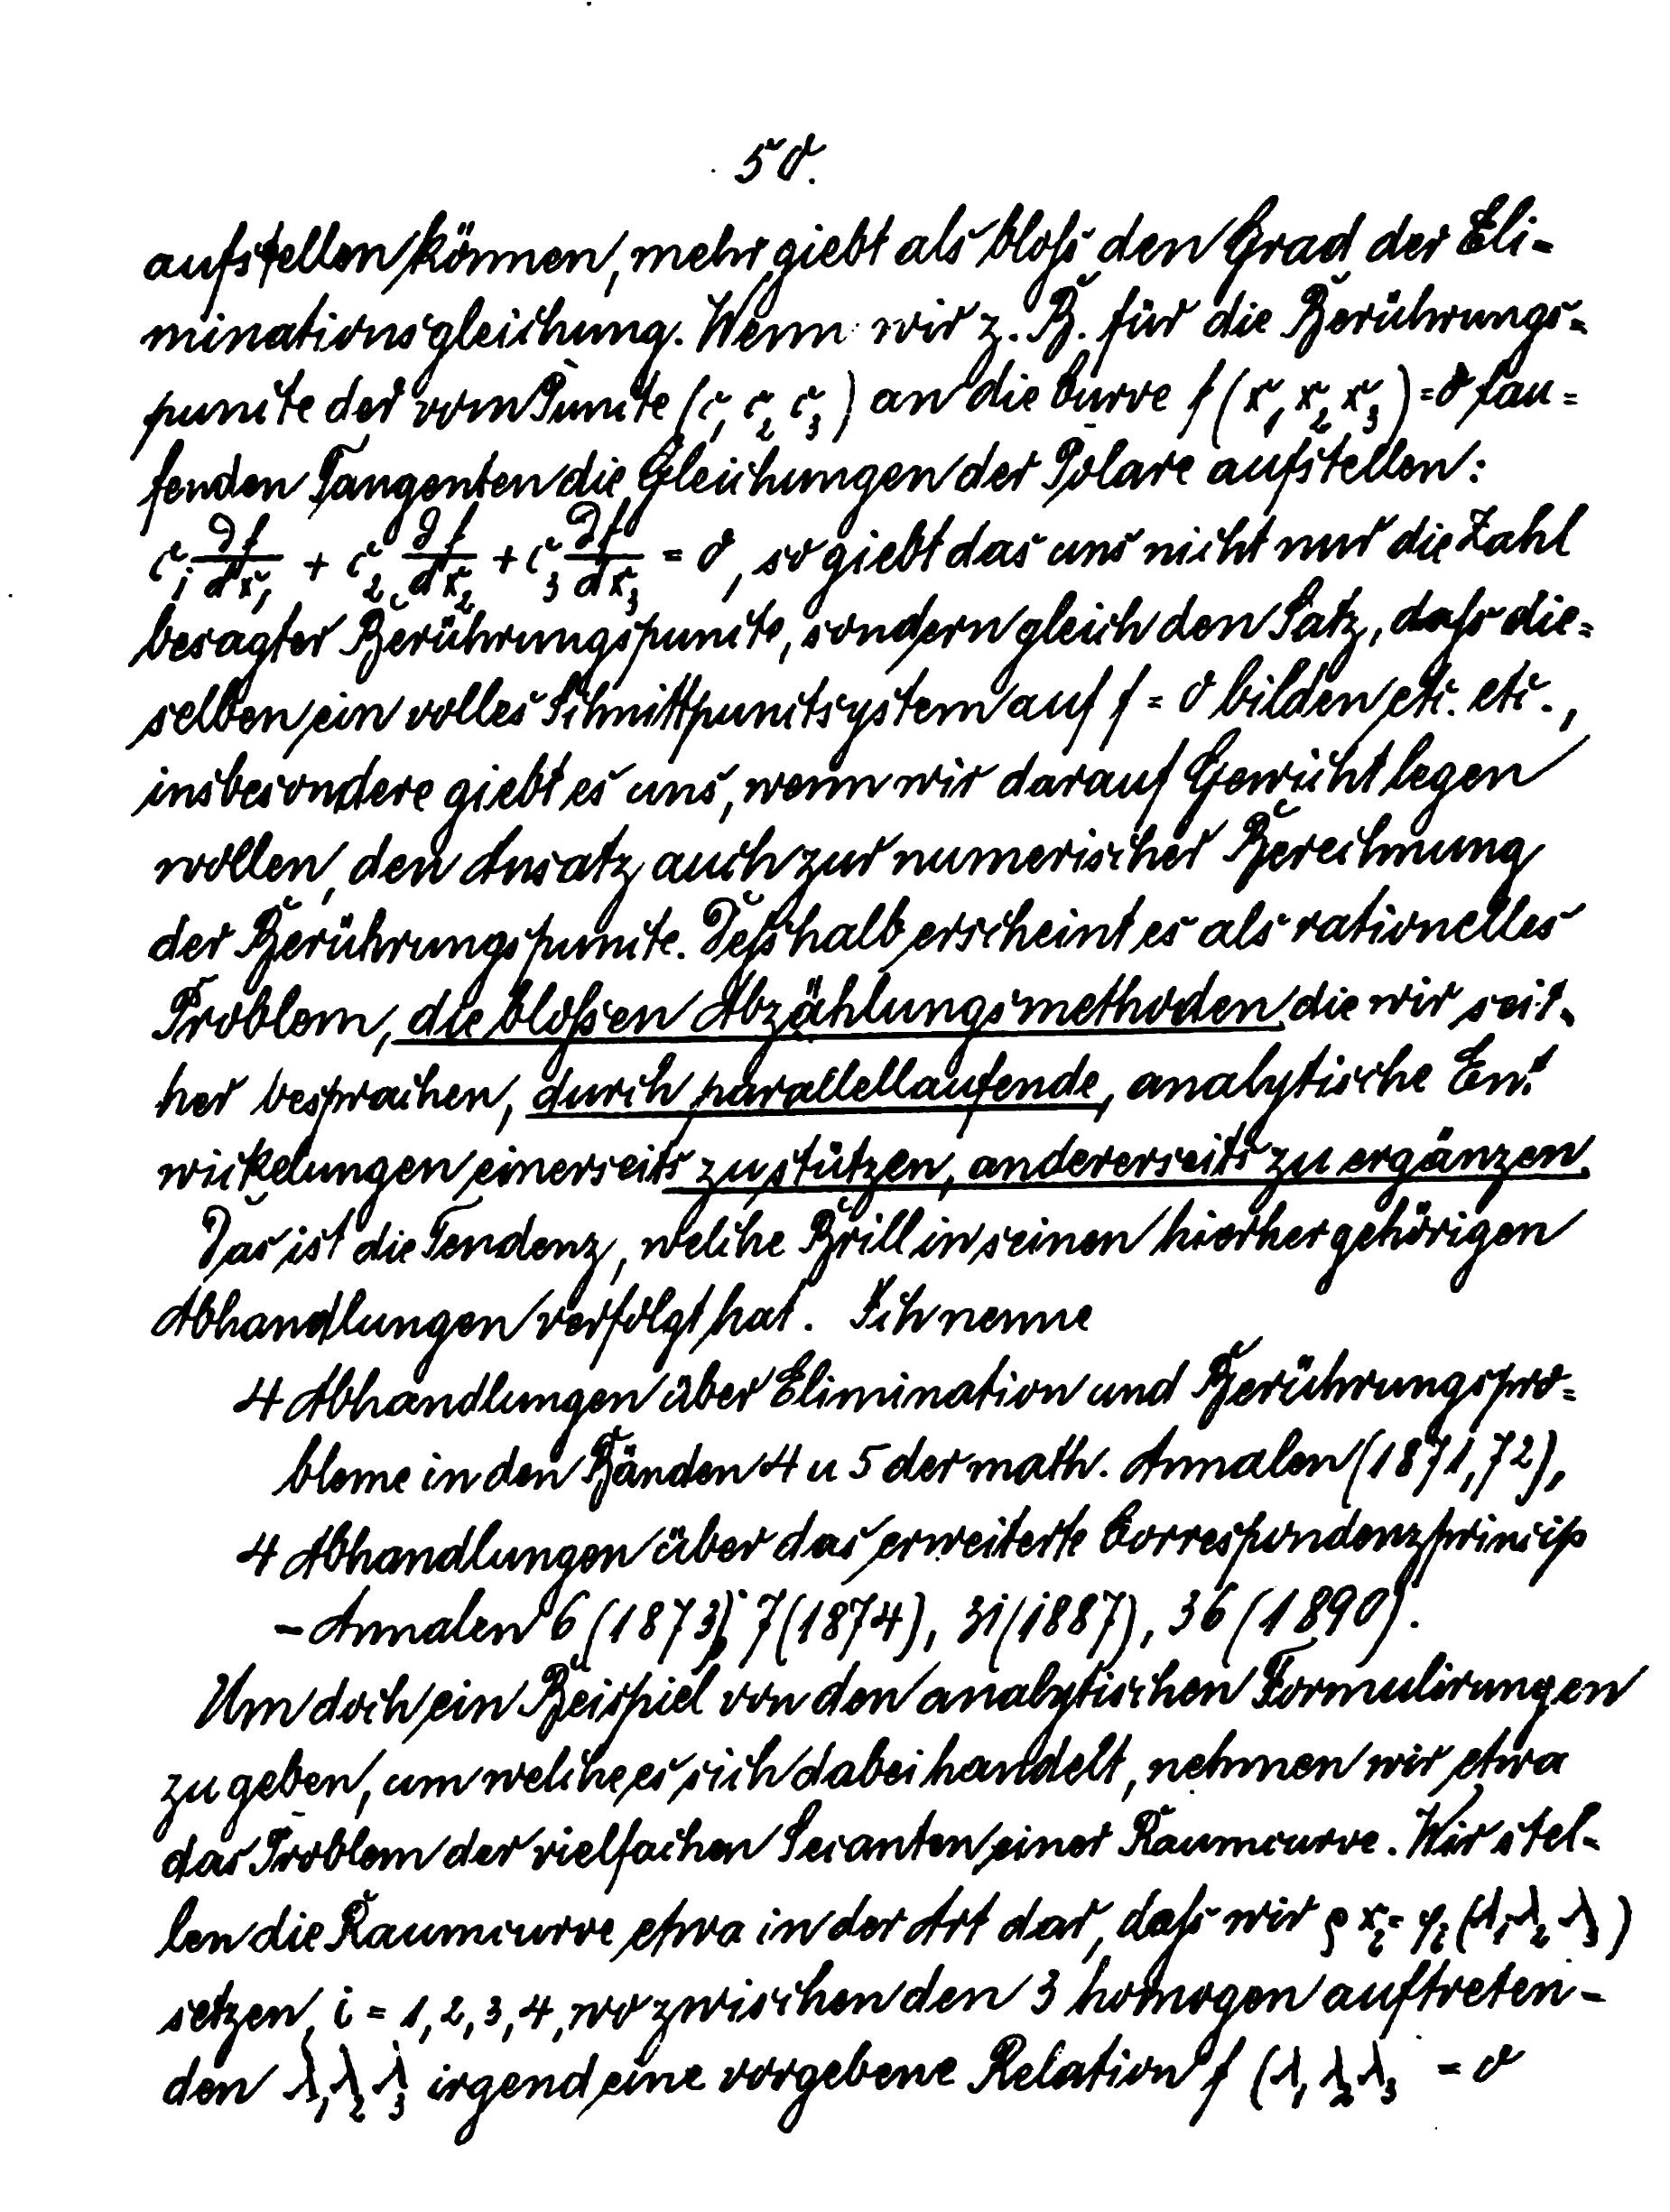 50.
aufstellen können, mehr giebt als bloß den Grad der Eli-
minationsgleichung. Wenn wir z. B. für die Berührungs-
puncte der vom Puncte (c₁ c₂ c₃) an die Curve f(x₁ x₂ x₃)=0 lau-
fenden Tangenten die Gleichungen der Polare aufstellen:
c₁ ∂f/dx₁ + c₂ ∂f/dx₂ + c₃ ∂f/dx₃ = 0, so giebt das uns nicht nur die Zahl
besagter Berührungspuncte, sondern gleich den Satz, daß die-
selben ein volles Schnittpunctsystem auf f = 0 bilden etc. etc.,
insbesondere giebt es uns, wenn wir darauf Gewicht legen
wollen, den Ansatz auch zur numerischer Berechnung
der Berührungspuncte. Deßhalb erscheint es als rationelles
Problem, die bloßen Abzählungsmethoden die wir seit-
her besprachen, durch parallellaufende, analytische Ent
wickelungen einerseits zu stützen, andererseits zu ergänzen.
Das ist die Tendenz, welche Brill in seinen hierher gehörigen
Abhandlungen verfolgt hat. Ich nenne
4 Abhandlungen über Elimination und Berührungspro-
bleme in den Bänden 4 u 5 der math. Annalen (1871,72),
4 Abhandlungen über das erweiterte Correspondenzprincip
– Annalen 6 (1873), 7 (1874), 31 (1887), 36 (1890).
Um doch ein Beispiel von den analytischen Formulirungen
zu geben, um welche es sich dabei handelt, nehmen wir etwa
das Problem der vielfachen Secanten einer Raumcurve. Wir stel-
len die Raumcurve etwa in der Art dar, daß wir ρxᵢ = φᵢ(λ₁ λ₂ λ₃)
setzen, i = 1, 2, 3, 4, wo zwischen den 3 homogen auftreten-
den λ₁ λ₂ λ₃ irgend eine vorgebene Relation f (λ₁ λ₂ λ₃ = 0